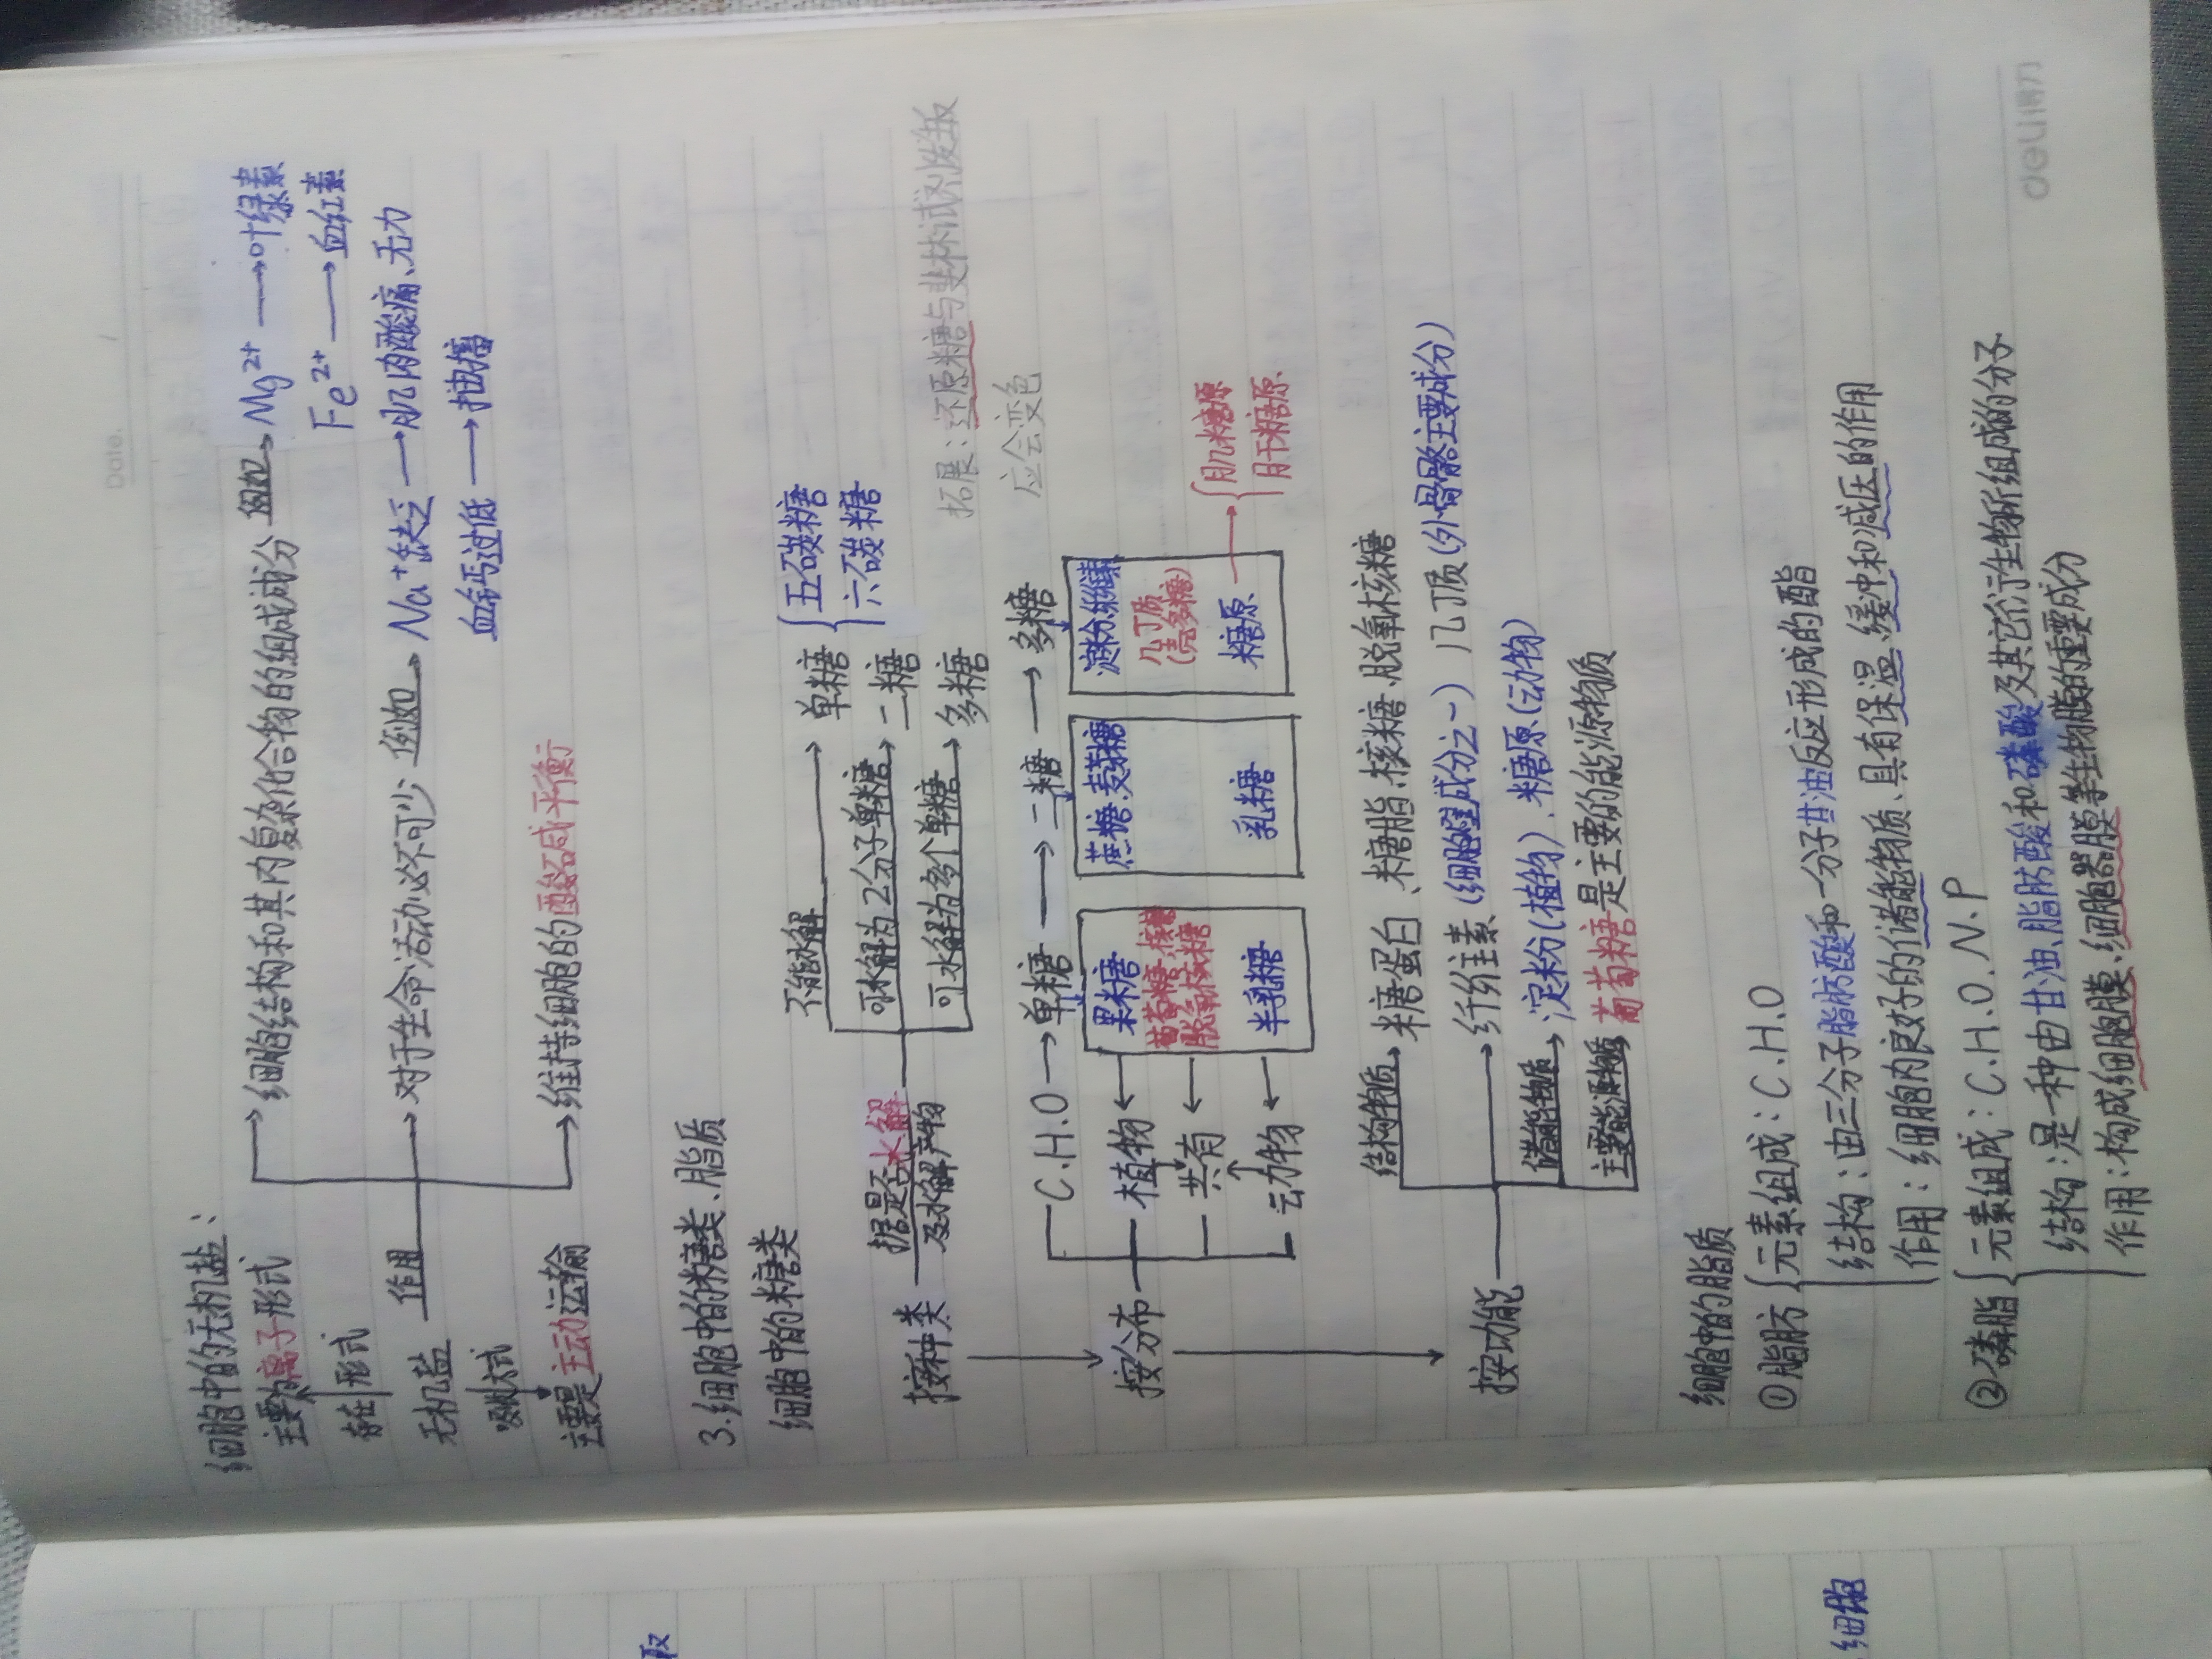 Date. /
细胞中的无机盐：
主要为离子形式
存在形式
无机盐 作用
吸收方式
主要是主动运输
细胞结构和其内复杂化合物的组成成分 例如 Mg²⁺ → 叶绿素
Fe²⁺ → 血红素
对于生命活动必不可少 例如 Na⁺缺乏 → 肌肉酸痛、无力
血钙过低 → 抽搐
维持细胞的酸碱平衡
3.细胞中的糖类、脂质
细胞中的糖类
按种类 据是否水解及水解产物
不能水解 → 单糖 { 五碳糖 六碳糖
可水解为2分子单糖 → 二糖
可水解为多个单糖 → 多糖
拓展：还原糖与斐林试剂发生反
应会变色
按分布
C.H.O → 单糖 → 二糖 → 多糖
植物 ← 果糖 蔗糖.麦芽糖 淀粉.纤维素
共有 ← 葡萄糖.核糖 脱氧核糖 几丁质(壳多糖)
动物 ← 半乳糖 乳糖 糖原 → { 肌糖原 肝糖原
按功能
结构物质 → 糖蛋白、糖脂.核糖.脱氧核糖
→ 纤维素(细胞壁成分之一) 几丁质(外骨骼主要成分)
储能物质 → 淀粉(植物)、糖原(动物)
主要能源物质 葡萄糖是主要的能源物质
细胞中的脂质
①脂肪 { 元素组成：C.H.O
结构：由三分子脂肪酸和一分子甘油反应形成的酯
作用：细胞内良好的储能物质、具有保温、缓冲和减压的作用
②磷脂 { 元素组成：C.H.O.N.P
结构：是一种由甘油、脂肪酸和磷酸及其它衍生物所组成的分子
作用：构成细胞膜、细胞器膜等生物膜的重要成分
取
细胞